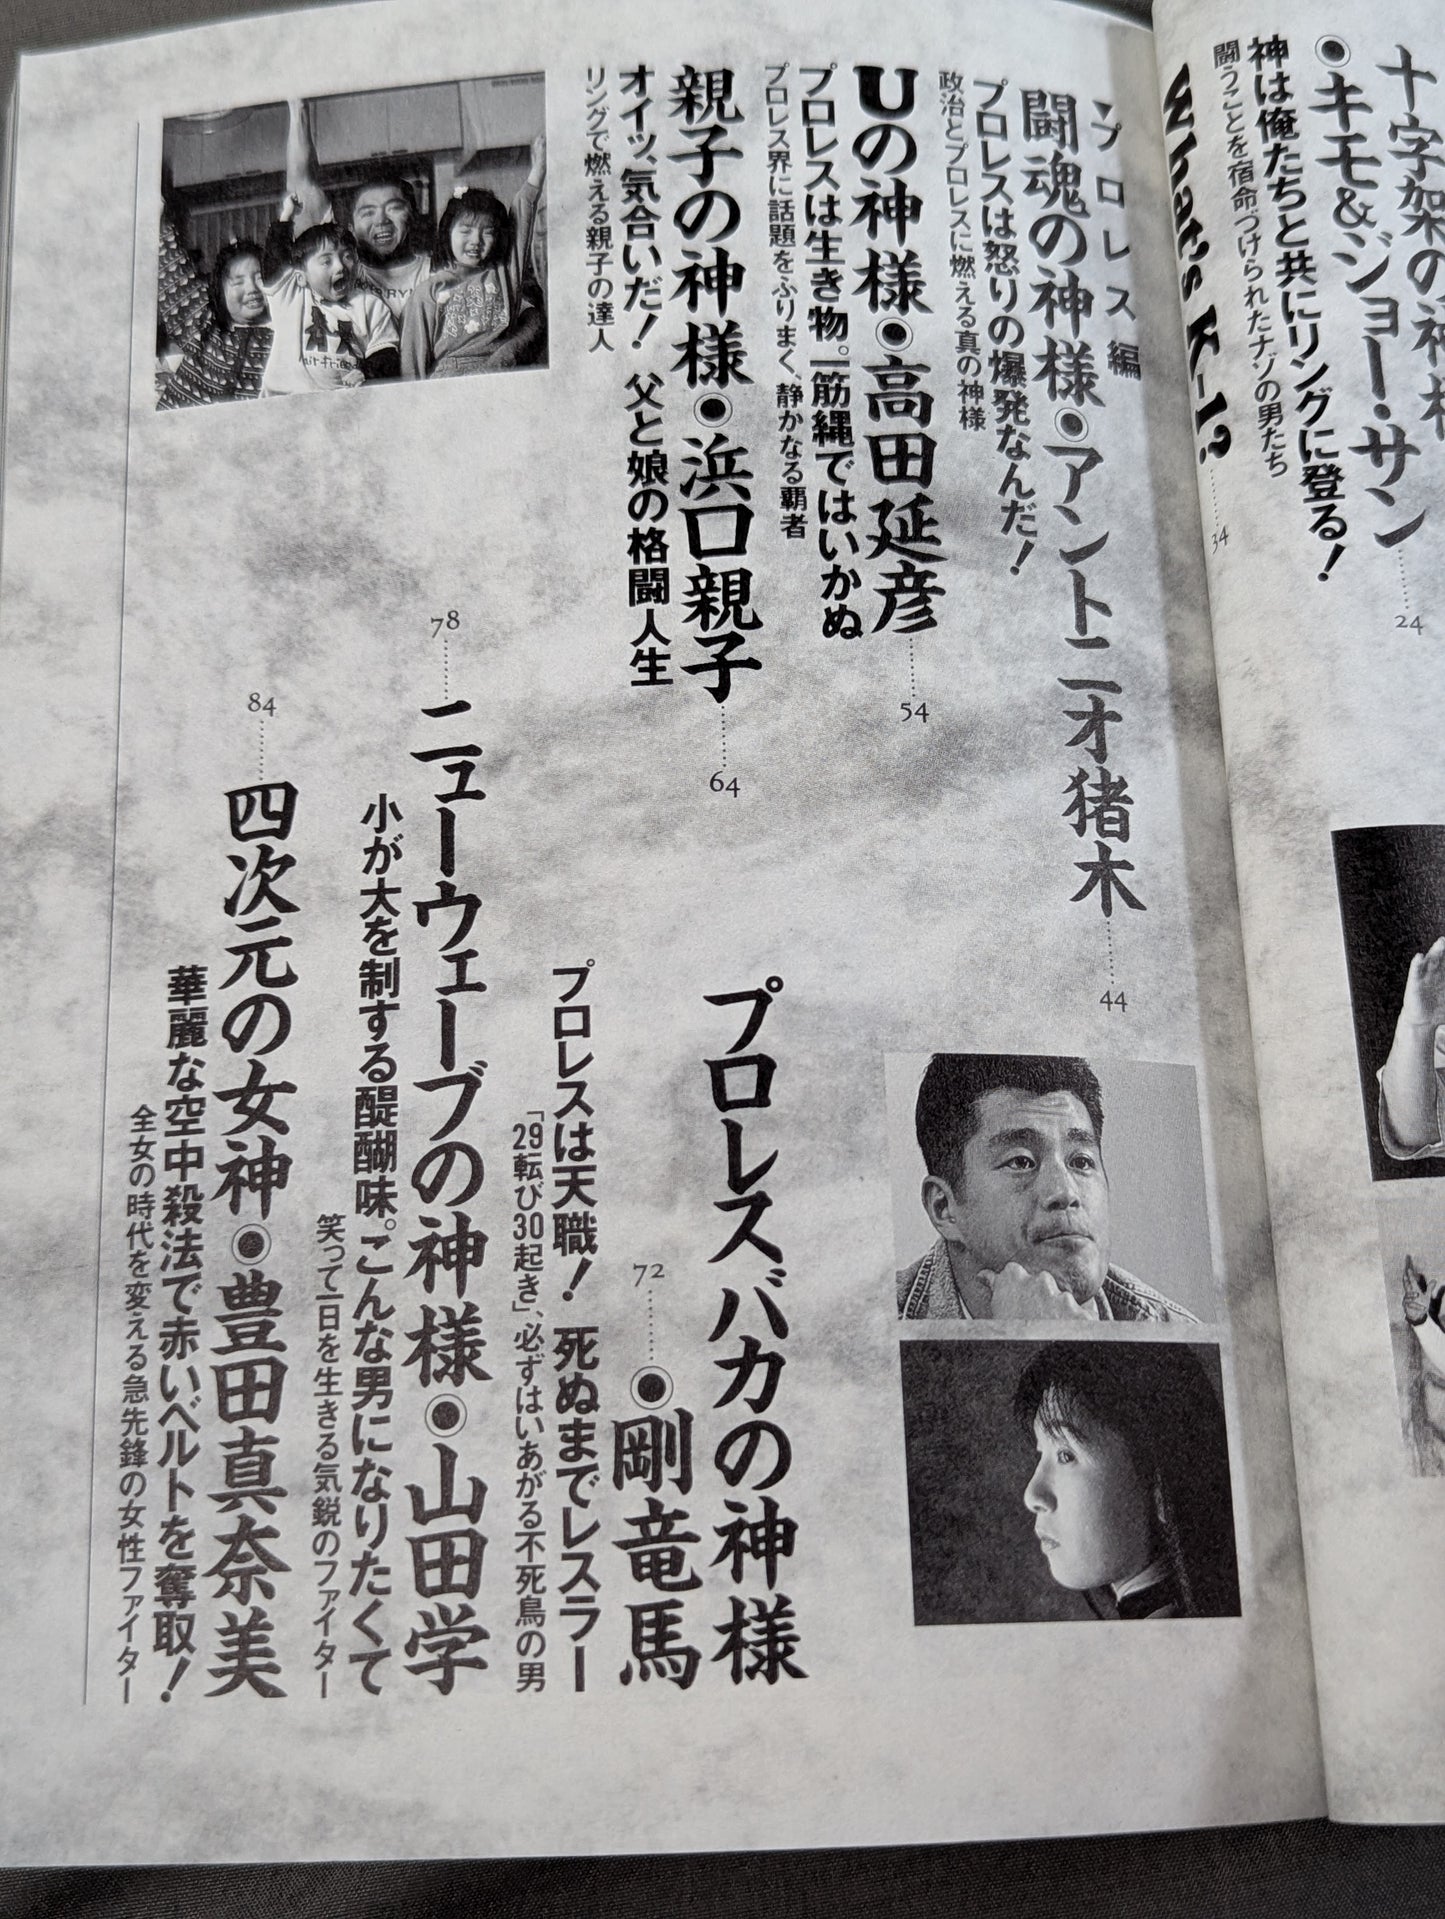 十字架の神様
●キモ&ジョー・サン……24
神は俺たちと共にリングに登る!
闘うことを宿命づけられたナゾの男たち
What's K-1?……34
プロレス編
闘魂の神様●アントニオ猪木……44
プロレスは怒りの爆発なんだ!
政治とプロレスに燃える真の神様
Uの神様●高田延彦……54
プロレスは生き物。一筋縄ではいかぬ
プロレス界に話題をふりまく、静かなる覇者
親子の神様●浜口親子……64
オイッ、気合いだ! 父と娘の格闘人生
リングで燃える親子の達人
プロレスバカの神様
72……●剛竜馬
プロレスは天職! 死ぬまでレスラー
「29転び30起き」、必ずはいあがる不死鳥の男
78……ニューウェーブの神様●山田学
小が大を制する醍醐味。こんな男になりたくて
笑って一日を生きる気鋭のファイター
84……四次元の女神●豊田真奈美
華麗な空中殺法で赤いベルトを奪取!
全女の時代を変える急先鋒の女性ファイター